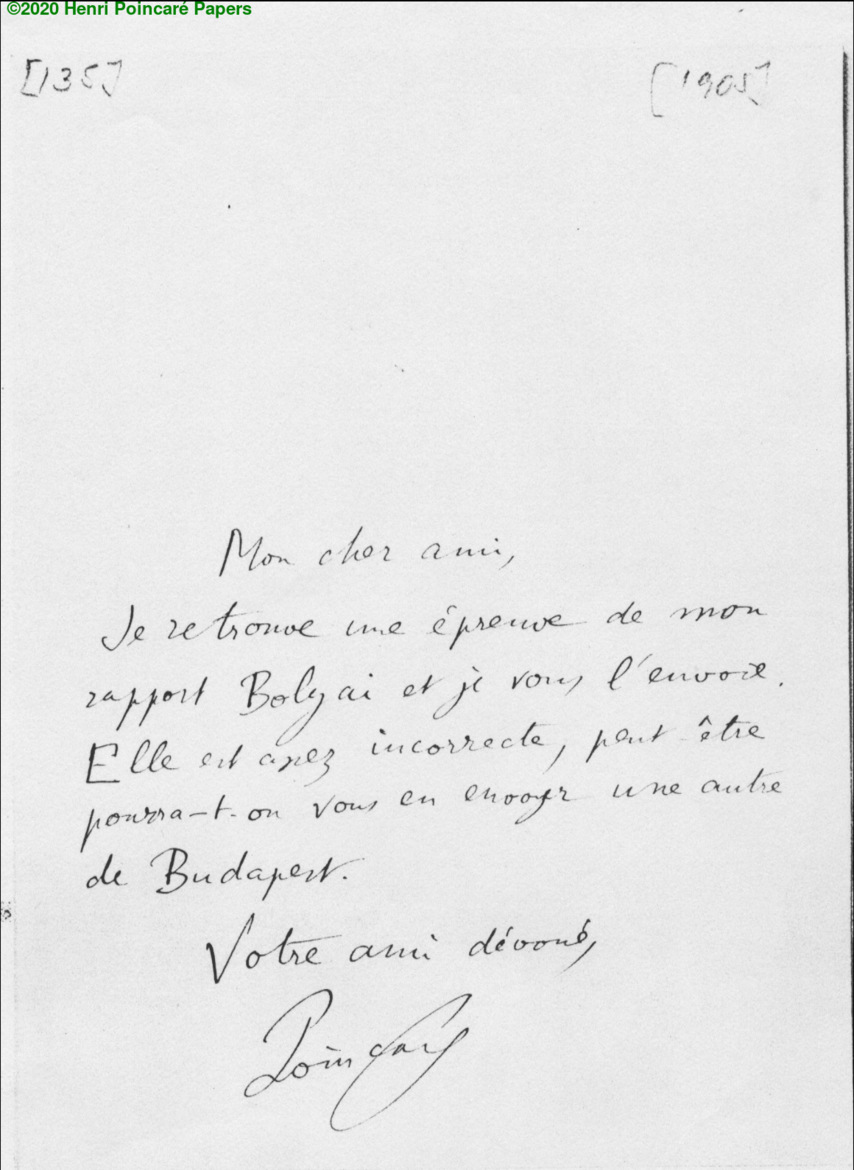 ©2020 Henri Poincaré Papers
[135] [1905]
Mon cher ami,
Je retrouve une épreuve de mon
rapport Bolyai et je vous l'envoie.
Elle est assez incorrecte, peut-être
pourra-t-on vous en envoyer une autre
de Budapest.
Votre ami dévoué,
Poincaré